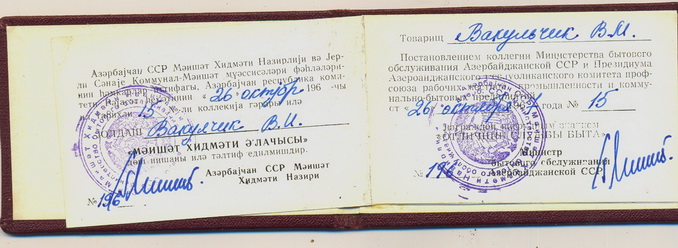 Азәрбајҹан ССР Мәишәт Хидмәти Назирлији вә Јер-
ли Сәнаје Коммунал-Мәишәт муәссисәләри фәһләләри-
Азәрбајҹан республика коми-
26 октјабр 196 -чы
15 ли коллекија гәрары илә
ЈОЛДАШ Вакулчик В.И.
"МӘИШӘТ ХИДМӘТИ ӘЛАЧЫСЫ"
дөш нишаны илә тәлтиф едилмишдир.
Азәрбајҹан ССР Мәишәт
Хидмәти Назири
№ 196
Товарищ Вакульчик В.И.
Постановлением коллегии Министерства бытового
обслуживания Азербайджанской ССР и Президиума
Азербайджанского республиканского комитета проф-
союза рабочих промышленности и комму-
нально-бытовых предприятий
от « 26 октября 196 года № 15
награжден
"ОТЛИЧНИК СЛУЖБЫ БЫТА"
Министр
бытового обслуживания
Азербайджанской ССР
№ 196